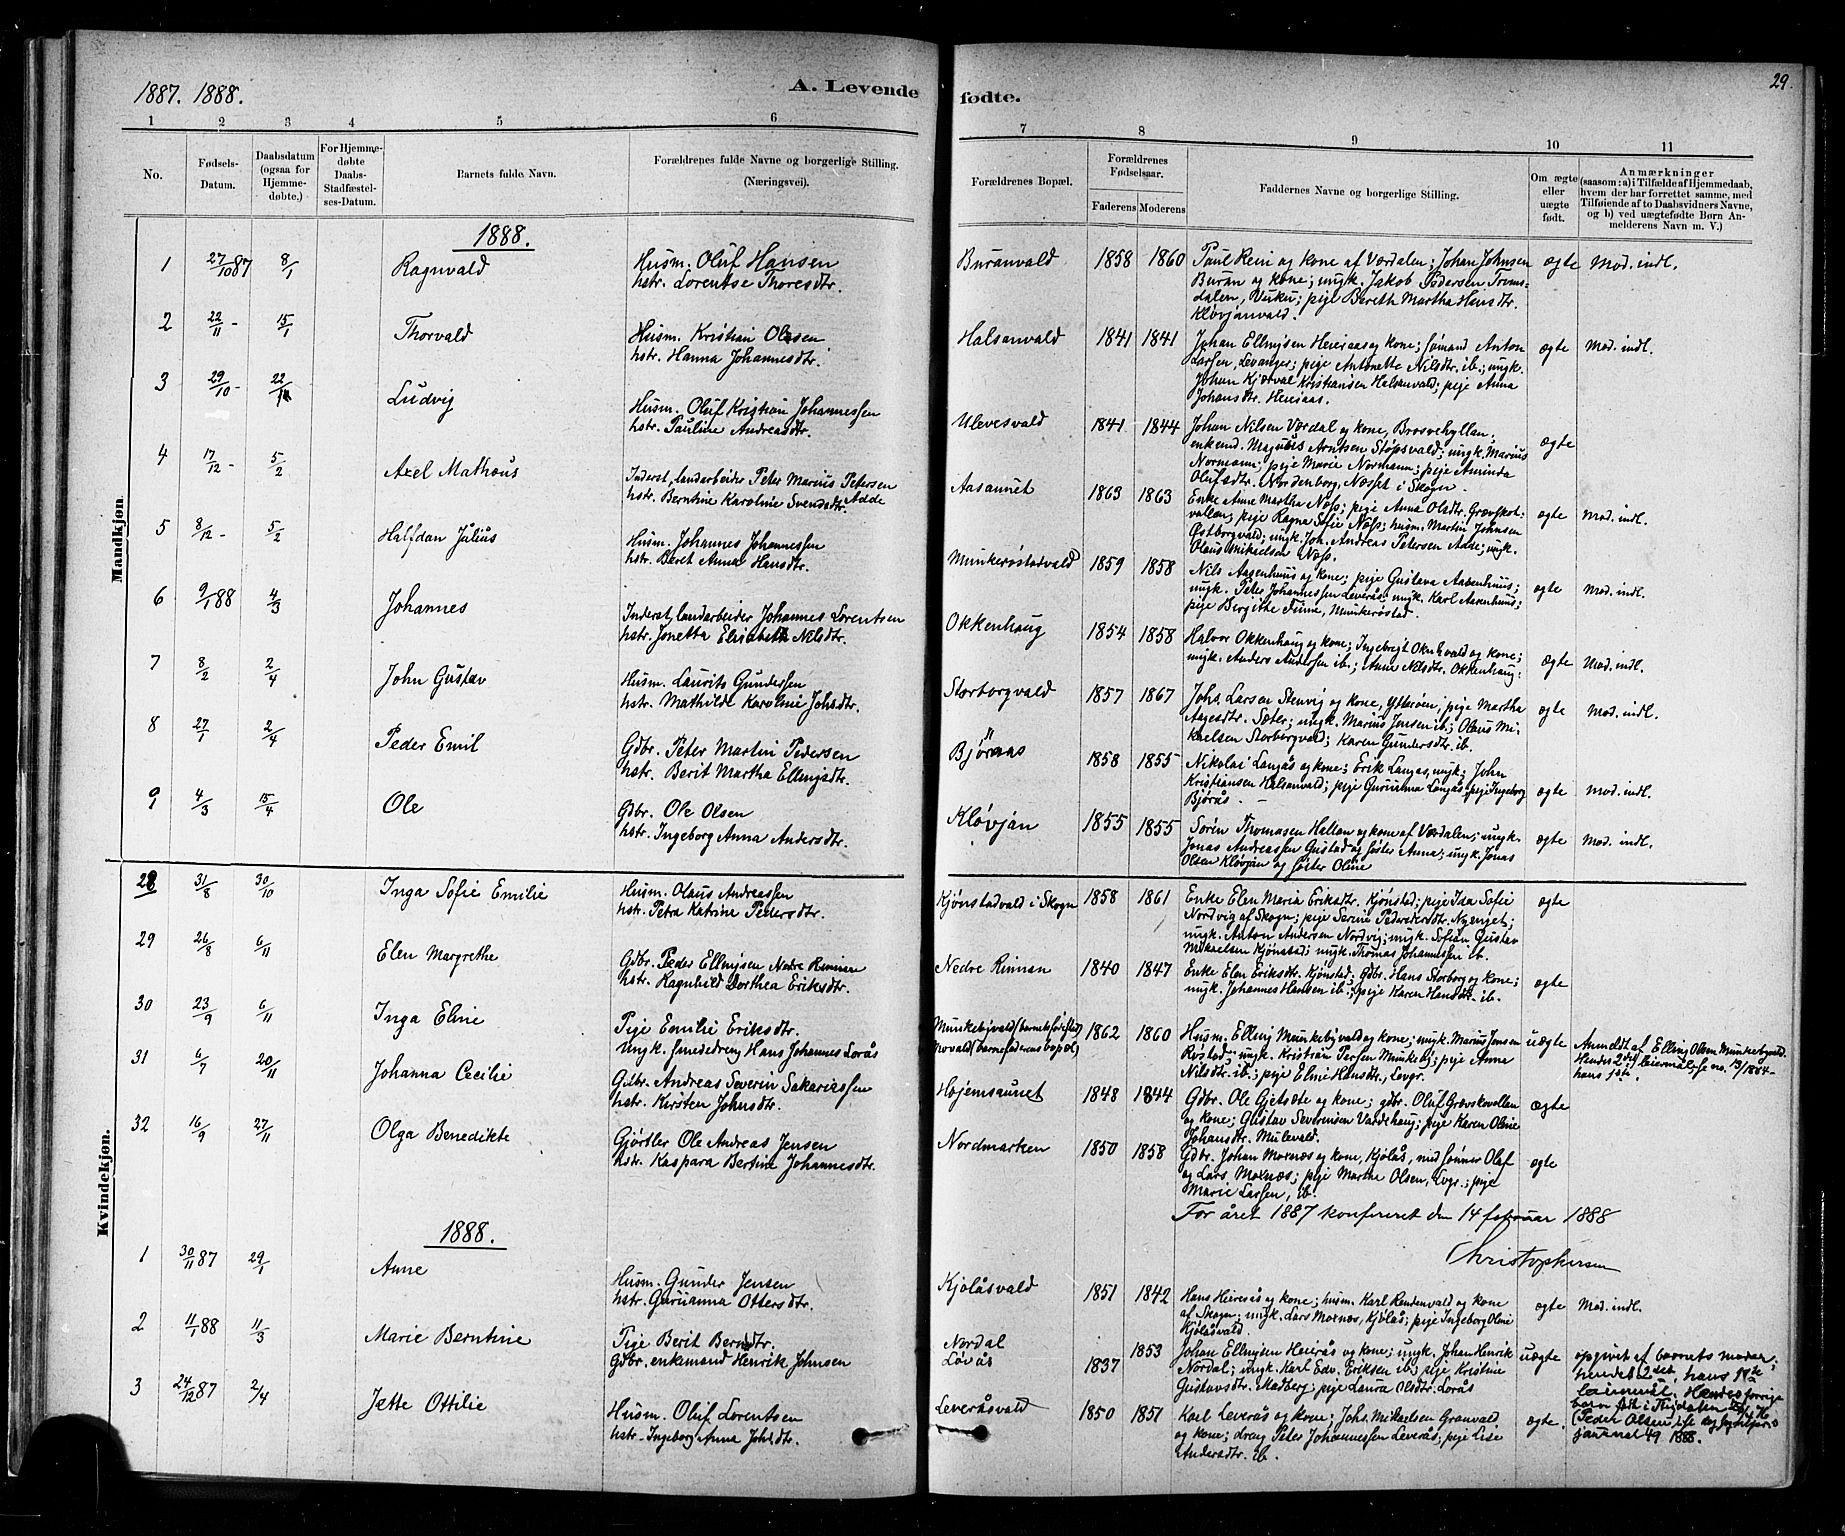 1887. 1888.
A. Levende
fødte.
29.
1 2 3 4 5 6 7 8 9 10 11
No.
Fødsels-
Datum.
Daabsdatum
(ogsaa for
Hjemme-
døbte.)
For Hjemme-
døbte
Daabs-
Stadfæstel-
ses-Datum.
Barnets fulde Navn.
Forældrenes fulde Navne og borgerlige Stilling.
(Næringsvei).
Forældrenes Bopæl.
Forældrenes
Fødselsaar.
Faderens Moderens
Faddernes Navne og borgerlige Stilling.
Om ægte
eller
uægte
født.
Anmærkninger
(saasom: a) i Tilfælde af Hjemmedaab,
hvem der har forrettet samme, med
Tilføiende af to Daabsvidners Navne,
og b) ved uægtefødte Børn An-
melderens Navn m. V.)
Mandkjøn.
1888.
1 27/10 87 8/1 Ragnvald
Husm. Oluf Hansen
hstr. Lorentse Thoresdtr.
Buranvald 1858 1860
Paul Rein og kone af Værdalen; Johan Johnsen
Buran og kone; ungk. Jakob Pedersen
dalen, Vuku; pige Bereth Martha Hansdtr.
Kløvjanvald.
ægte Mod. indl.
2 22/11 - 15/1 Thorvald
Husm. Kristian Olsen
hstr. Hanna Johannesdtr.
Halsanvald 1841 1841
Johan Ellingsen Heieraas og kone; sømand Anton
Larsen, Levanger; pige Antonette Nilsdtr. ib.; ungk.
Johan Kristiansen Halsanvald; pige Anna
Johansdtr. Heieraas.
ægte Mod. indl.
3 29/10 - 22/1 Ludvig
Husm. Oluf Kristian Johannessen
hstr. Pauline Andreasdtr.
Ulevesvald 1841 1844
Johan Nilsen Værdal og kone,
enkemd. Magnus Arntsen Støpsvald; ungk. Marius
Normann; pige Marie Normann; pige
Olufsdtr. Nordenborg, Næsset i Skogn.
ægte
4 17/12 - 5/2 Axel Mathæus
Inderst, landarbeider Peter Marius Petersen
Adde
hstr. Berntine Karoline Svendsdtr.
Aasanvet 1863 1863
Enke Anne Martha Næss; pige Anna Olsdtr. Grævskot-
vollen; pige Ragna Sofie Næss; husm. Martin Johnsen
Østborgvald; ungk. Joh. Andreas Petersen Adde; ungk.
Olaus Mikaelsen Næss.
ægte Mod. indl.
5 8/12 - 5/2 Halfdan Julius
Husm. Johannes Johannessen
hstr. Beret Anna Hansdtr.
Munkerøstadvald 1859 1858
Nils Aasenhuus og kone; pige Gustava Aasenhuus;
ungk. Peter Johannessen Leverås; ungk. Karl Aasenhuus;
pige Birgitte Fiine, Munkerøstad.
ægte Mod. indl.
6 9/1 88 4/3 Johannes
Inderst, landarbeider Johannes Lorentsen
hstr. Jonetta Elisabeth Nilsdtr.
Okkenhaug 1854 1858
Halvor Okkenhaug og kone; Ingebrigt Oknh.vald og kone;
ungk. Anders Andersen ib.; Anne Nilsdtr. Okkenhaug.
ægte Mod. indl.
7 8/2 2/4 John Gustav
Husm. Laurits Gundersen
hstr. Mathilde Karoline Johsdtr.
Storborgvald 1857 1867
Johs. Larsen Stenvig og kone, Ytterøen; pige Martha
Aagesdtr. Sæter; ungk. Marius Jensen ib.; Olaus Mi-
kaelsen Storborgvald; Karen Gundersdtr. ib.
ægte Mod. indl.
8 27/1 2/4 Peder Emil
Gdbr. Peter Martin Pedersen
hstr. Berit Martha Ellingsdtr.
Bjøraas 1858 1855
Nikolai Langås og kone; Erik Langås, ungk; John
Kristiansen Halsanvald; pige Gurianna Langås, pige Ingeborg
Bjørås.
ægte Mod. indl.
9 4/3 15/4 Ole
Gdbr. Ole Olsen
hstr. Ingeborg Anna Andersdtr.
Kløvjan 1855 1855
Søren Thomasen Hallan og kone af Værdalen; ungk.
Jonas Andreassen Gustad og søster Anna; ungk. Jonas
Olsen Kløvjan og søster Oline
ægte Mod. indl.
Kvindekjøn.
28 31/8 30/10 Inga Sofie Emilie
Husm. Olaus Andreassen
hstr. Petra Katrine Pedersdtr.
Kjønstadvald i Skogn 1858 1861
Enke Elen Maria Eriksdtr. Kjønstad; pige Ida Sofie
Nordvig af Skogn; pige Serine Pedersdtr. Nyenget;
ungk. Anton Andersen Nordvig; ungk. Sofian Gustav
Mikaelsen Kjønstad; ungk. Thomas Johannessen ib.
ægte
29 26/8 6/11 Elen Margrethe
Gdbr. Peder Ellingsen Nedre Rinnan
hstr. Ragnhild Dorthea Eriksdtr.
Nedre Rinnan 1840 1847
Enke Elen Eriksdtr. Kjønstad. Gdbr. Hans Storborg og kone;
ungk. Johannes Hansen ib.; pige Karen Hansdtr. ib.
ægte
30 23/9 6/11 Inga Eline
Pige Emilie Eriksdtr.
Ungk. smededreng Hans Johannes Lorås
Munkebyvald (barnets fødested)
Movald (barnefaderens bopæl) 1862 1860
Husm. Elling Munkebyvald og kone; ungk. Marius Jensen
Røstad; ungk. Kristian Persen Munkeby; pige Anna
Nilsdtr. ib.; pige Elmi Hansdtr., Levgr.
uægte
Anmeldt af Elling Olsen Munkebyvald.
Hendes 2det leiermål, se no. 13/1884 -
hans 1ste.
31 6/7 20/11 Johanna Cecilie
Gdbr. Andreas Severin Sakariassen
hstr. Kirsten Johnsdtr.
Højemsaunet 1848 1844
Gdbr. Ole Gjetsæte og kone; gdbr. Oluf Grævskovollan
og kone; Gustav Severinsen Vardehaug; pige Karen Oline
Johansdtr. Mulevald.
ægte
32 16/9 27/11 Olga Benedikte
Gjørtler Ole Andreas Jensen
hstr. Kaspara Bertine Johannesdtr.
Nordmarken 1850 1858
Gdbr. Johan Moxnæs og kone, Kjølås, med sønner Olaf
og Lars Moxnæs; pige Marthe Olsen, Lvgr.; pige
Marie Larsen, ib.
ægte
For året 1887 konfereret den 14 februar 1888
Christophersen
1888.
1 30/11 87 29/1 Anne
Husm. Gunder Jensen
hstr. Gurianna Ottersdtr.
Kjølåsvald 1851 1842
Hans Heierås og kone; husm. Karl Rendenvald og kone
af Skogn; ungk. Lars Moxnæs, Kjølås; pige Ingeborg Oline
Kjølåsvald.
ægte Mod. indl.
2 11/1 88 11/3 Marie Berntine
Pige Berit Berntdtr.
Gdbr. enkemand Henrik Johnsen
Nordal
Løvås 1837 1853
Johan Ellingsen Heierås og kone; ungk. Johan Henrik
Nordal; ungk. Karl Edv. Eriksen ib.; pige Kristine
Gustavsdtr. Madberg; pige Laura Olsdtr. Lorås
uægte
opgivet af barnets moder;
hendes 2det, hans 1ste
leiermål. Hendes forrige
barn født i
(Peder Olsen
journal 49 1888.
3 24/12 87 2/4 Jette Ottilie
Husm. Oluf Lorentsen
hstr. Ingeborg Anna Johsdtr.
Leveråsvald 1850 1851
Karl Leverås og kone; Johs. Mikaelsen Granvald
og kone; dreng Peter Johannessen Leverås; pige Lise
Andersdtr. ib.
ægte.